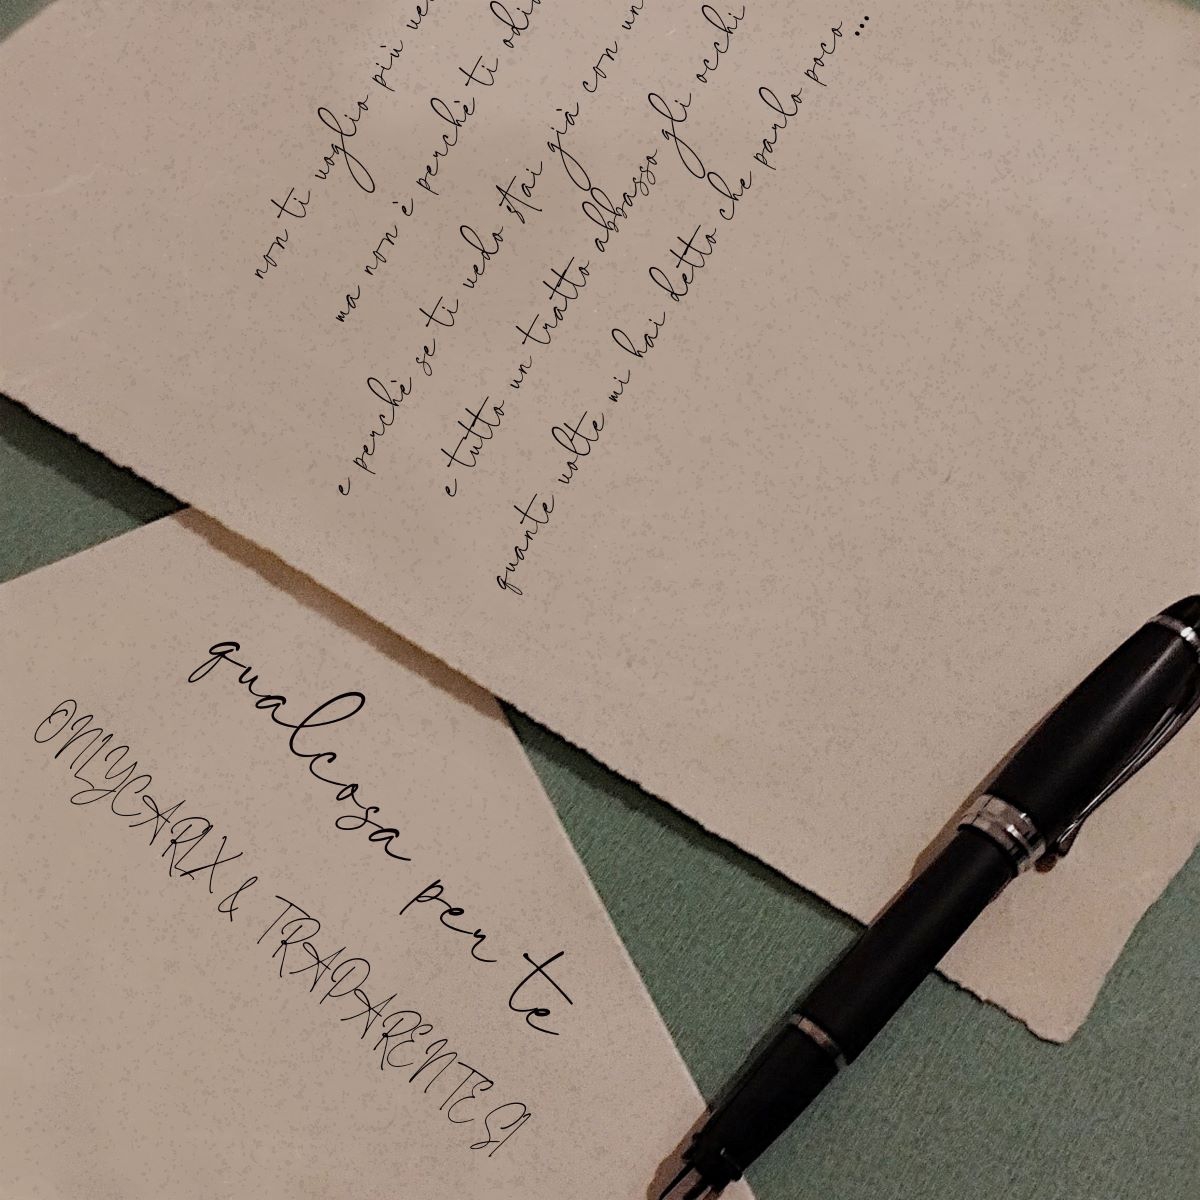 non ti voglio più
ma non è perché ti
e perché se ti vedo stai già con un
e tutto un tratto abbasso gli occhi
quante volte mi hai detto che parlo poco...
qualcosa per te
ONLYCARLX & TRAPARENTESI